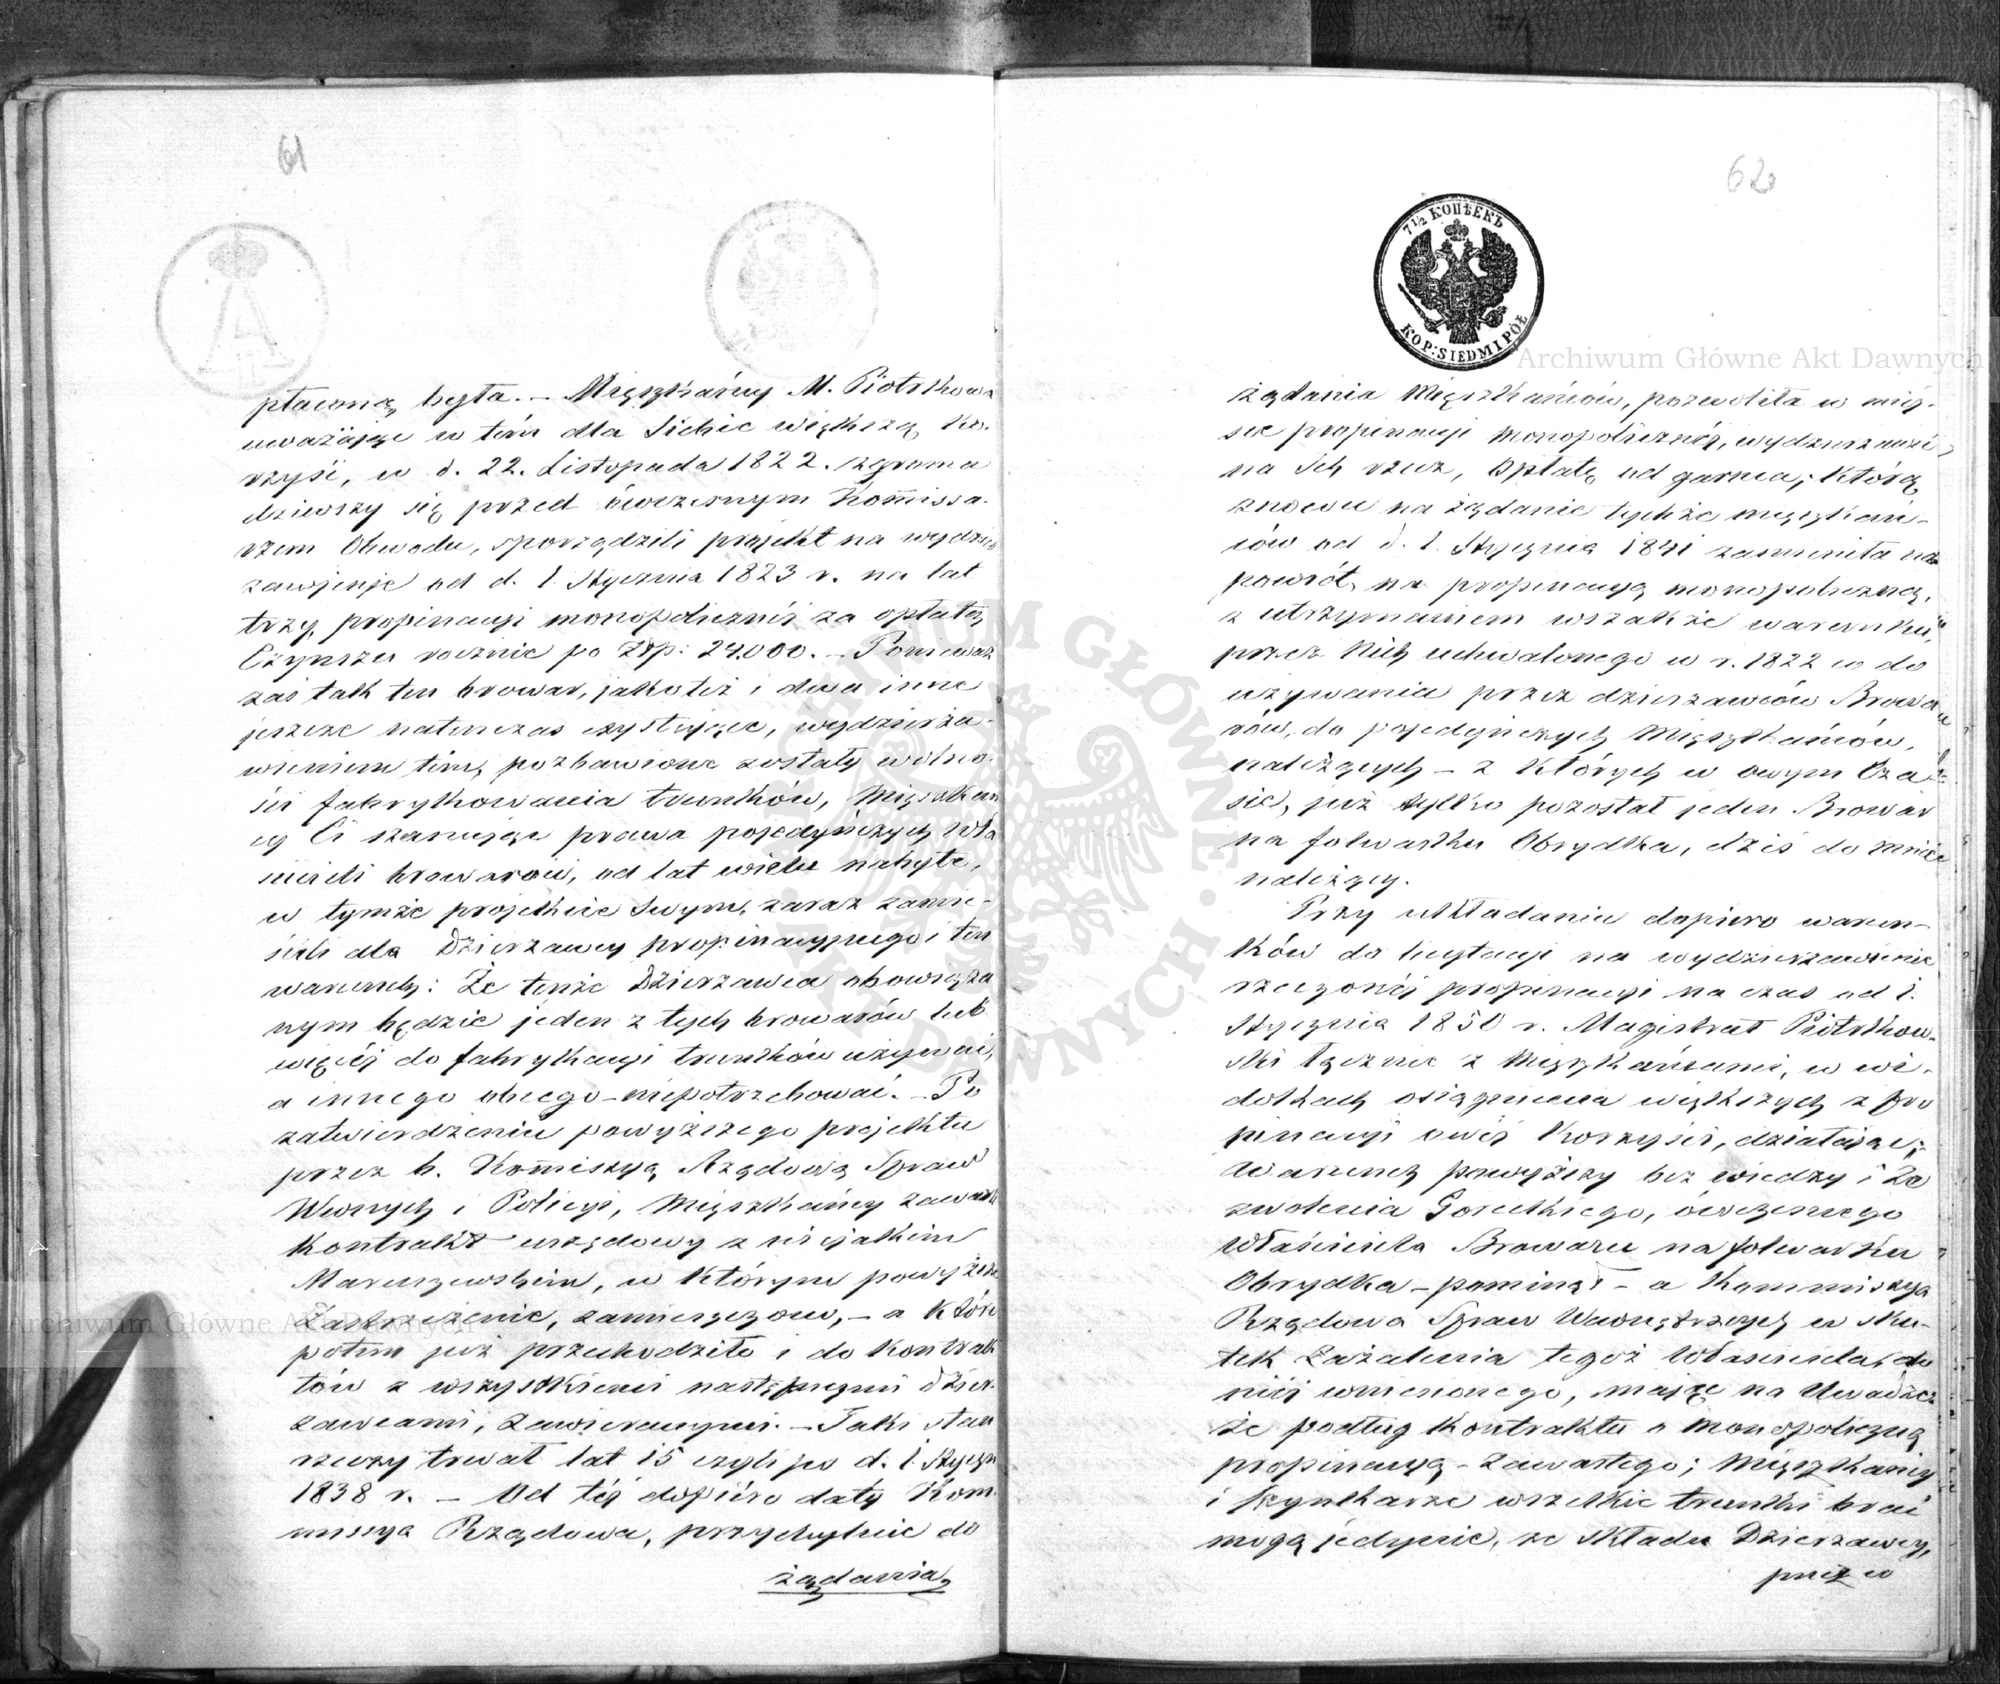 61
płaconą była. – Mięszkańcy M. Piotrkowa
uważając w tém dla Siebie większą Ko-
rzyść, w d. 22. Listopada 1822. zgroma
dziwszy się przed ówczesnym Kom̃issa-
rzem Obwodu, sporządzili projekt na wydzier
zawienie od d. 1. Stycznia 1823 r. na lat
trzy, propinacyi monopolicznéj za opłatą
Czynszu rocznie po Złp: 24.000. – Ponieważ
zaś tak ten browar, jako też i dwa inne
jeszcze natenczas exystujące, wydzierża-
wieniem tém, pozbawione zostały wolno-
ści fabrykowania trunków, Mięszkań
cy Ci szanując prawa pojedyńczych Wła
ścicieli browarów, od lat wielu nabyte,
w tymże projekcie swym, zaraz zamie-
ścili dla Dzierzawcy propinacyjnego i ten
warunek: Że tenże Dzierzawca obowiąza
nym będzie jeden z tych browarów lub
więcéj do fabrykacyi trunków używać,
a innego obcego niepotrzebować. – Po
zatwierdzeniu powyższego projektu
przez b. Kom̃issyą Rządową Spraw
Wewnych i Policyi, Mięszkańcy zawarli
Kontrakt urzędowy z niejakim
Maruszewskim, w którym powyższe
Zastrzeżenie, zamieszczono, – a które
potem już przechodziło i do Kontrak
tów z wszystkiemi następnymi dzier-
zawcami, Zawieranymi. – Taki stan
rzeczy trwał lat 15 czyli po d. 1. Styczn
1838 r. – Od téj dopiéro daty Kom-
missya Rządowa, przychylnie do
żądania
62
7½ КОПѢЕКЪ
KOP: SIEDM I PÓŁ
żądania Mięszkańców, pozwoliła w miéj-
sce propinacyi monopolicznéj, wydzierzawić
na Ich rzecz, Opłatę od garnca, którą
znowu na żądanie tychże mięszkań-
ców od d. 1. Stycznia 1841 zamieniła na
powrót, na propinacyą monopoliczną,
z utrzymaniem wszakże warunku,
przez Nich uchwalonego w r. 1822 co do
używania przez dzierzawców Browa
rów, do pojedyńczych Mięszkańców,
należących – z Których w owym Cza
sie, już tylko pozostał jeden Browar
na folwarku Obrydka, dziś do mnie
należący.
Przy układaniu dopiero warun-
ków do licytacyi na wydzierzawienie
rzeczonéj propinacyi na czas od 1.
Stycznia 1850 r. Magistrat Piotrkow-
ski łącznie z Mięszkańcami, w wi-
dokach osiągnienia większych z pro
pinacyi owéj Korzyści, działając;
Warunek powyższy bez wiedzy i Ze
zwolenia Goreckiego, ówczesnego
Właściciela Browaru na folwarku
Obrydka – pominął – a Kommissya
Rządowa Spraw Wewnętrznych w sku-
tek Zażalenia tegoż Właściciela, do
niéj wniesionego, mając na Uwadze
że podług Kontraktu o monopoliczną
propinacyą – Zawartego; Mięszkańcy
i szynkarze wszelkie trunki brać
mogą jedynie, ze składu Dzierzawcy,
Archiwum Główne Akt Dawnych
Archiwum Główne Akt Dawnych
ARCHIWUM GŁÓWNE AKT DAWNYCH